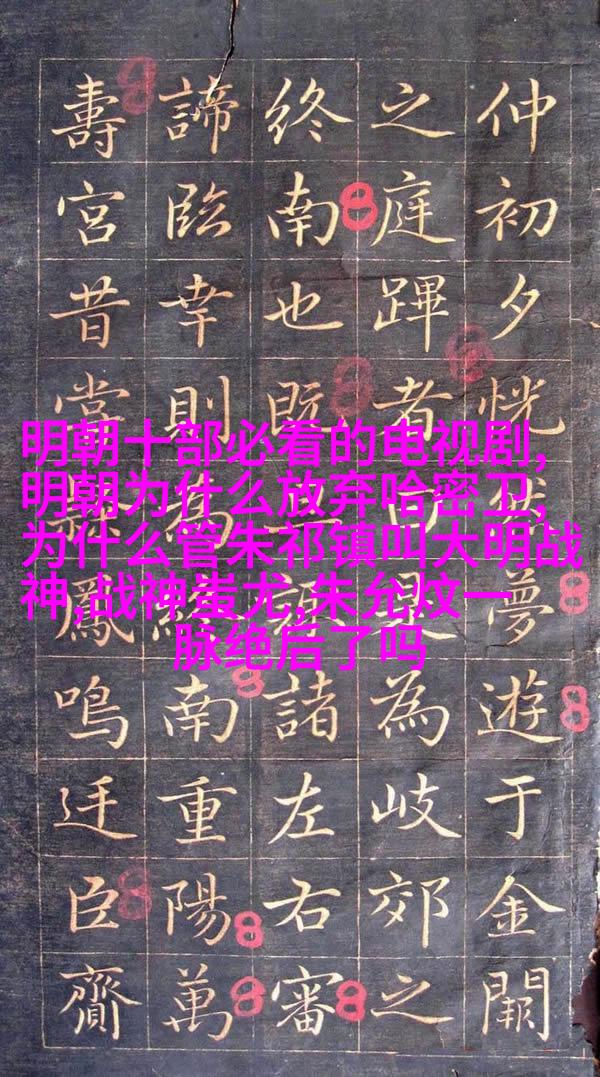 仲初夕恍夢遊于金闕
之庭蹕者為岐郊之
終南也既諸左右審
諦臨幸則為南重陽萬
壽宮昔鳳鳴迋臣齎
明朝十部必看的电视剧,
明朝为什么放弃哈密卫,
为什么管朱祁镇叫大明战
神,战神蚩尤,朱允炆一
脉绝后了吗